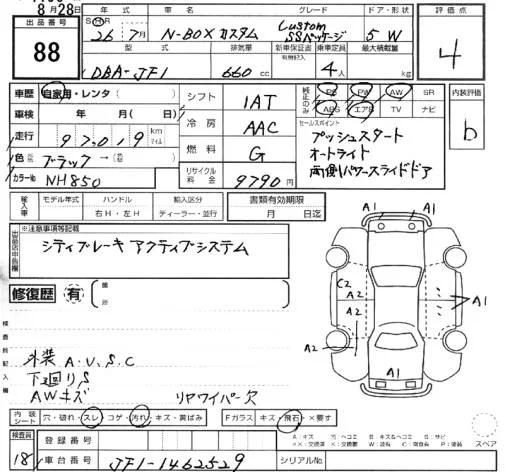 8月28日
出品番号 88
年式 S H 26年 7月
車名 N-BOX カスタム
グレード Custom SSパッケージ
ドア・形状 5 W
評価点 4
型式 DBA-JF1
排気量 660 cc
新車保証書 有機記入
乗車定員 4人
最大積載量 kg
車歴 自家用・レンタ( )
車検 年 月( 日)
走行 97,019 km マイル
色 ブラック →(色替)
カラーNo NH850
シフト IAT
冷房 AAC
燃料 G
リサイクル料金 9790 円
純正のみ PS PW AW SR
ABS エアB TV ナビ
セールスポイント
プッシュスタート
オートライト
両側パワースライドドア
内装評価 b
輸入車 モデル年式 ハンドル 右H・左H 輸入区分 ディーラー・並行
書類有効期限 月 日迄
出品店申告欄 ※注意事項等記載
シティブレーキ アクティブシステム
修復歴 有 箇所
検査員記入欄
外装 A.U.S.C
下廻りS
AWキズ リヤワイパー欠
A1 A1
C2
A2 A2
A2
A1
A1
内装シート 穴・破れ・スレ コゲ・汚れ・キズ・黄ばみ
Fガラス キズ・飛石・×要す
スペア
検査員 18
登録番号
車台番号 JF1-1462529
シリアルNo.